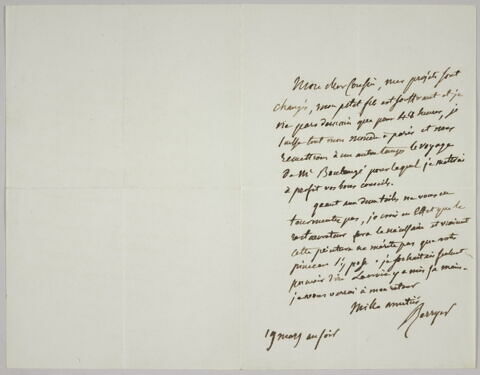 Mon cher Cousin, mes projets sont
changés, mon petit fils est souffrant et je
ne pars demain que pour 48 heures, je
laisse tout mon monde à paris et nous
remettrons à un autre temps le voyage
de Mr Boulangé pour lequel je mettrai
à profit vos bons conseils.
quant aux deux toiles ne vous en
tourmentez pas, je crois en effet que le
restaurateur fera le nécessaire et vraiment
cette peinture ne mérite pas que votre
pinceau s'y pose. je souhaitais
pouvoir dire Lacroix y a mis sa main.
je vous verrai à mon retour
Mille amitiés
Berryer
19 mars au soir